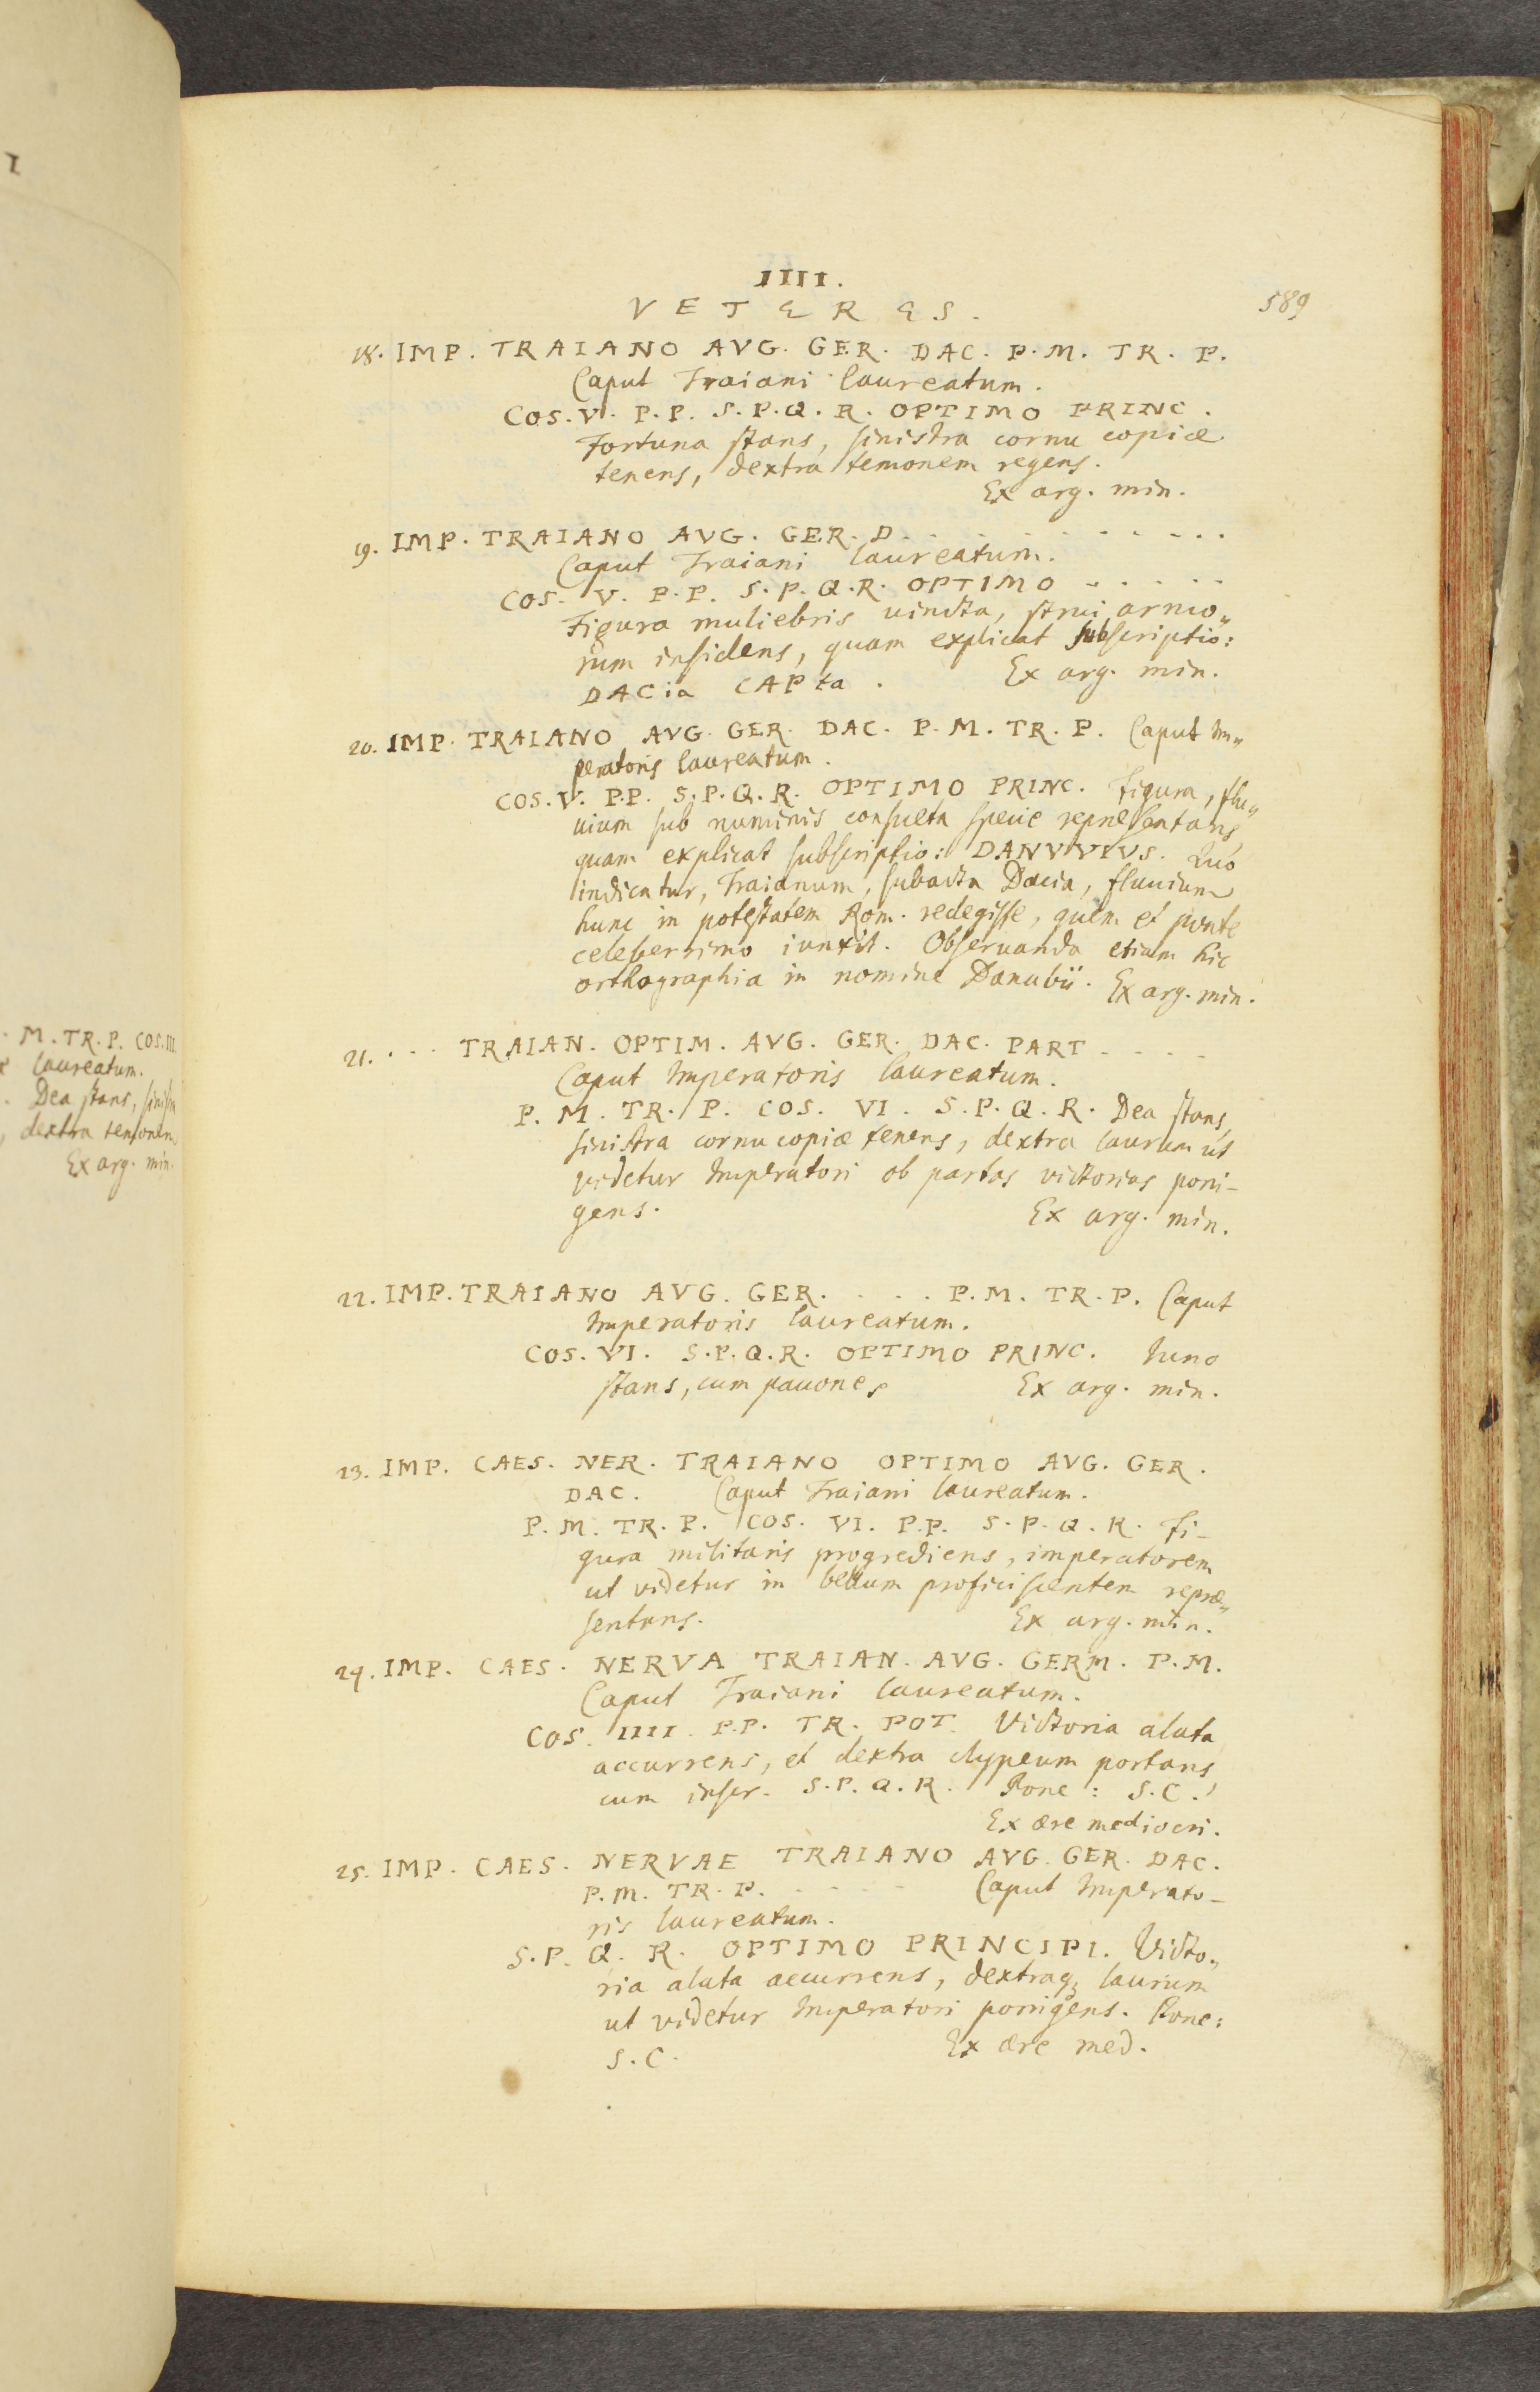 IIII.
VETERES.
589
18. IMP. TRAIANO AVG. GER. DAC. P. M. TR. P.
Caput Traiani laureatum.
COS. V. P. P. S. P. Q. R. OPTIMO PRINC.
Fortuna stans, sinistra cornu copiæ
tenens, dextra temonem regens.
Ex arg. min.
19. IMP. TRAIANO AVG. GER. D. . . . . . . . .
Caput Traiani laureatum.
COS. V. P. P. S. P. Q. R. OPTIMO . . . . .
Figura muliebris uincta, strui armo„
rum insidens, quam explicat subscriptio:
DACia CAPta. Ex arg. min.
20. IMP. TRAIANO AVG. GER. DAC. P. M. TR. P. Caput Im„
peratoris laureatum.
COS. V. P.P. S. P. Q. R. OPTIMO PRINC. Figura, flu„
uium sub numinis consueta specie repræsentans
quam explicat subscriptio: DANVVIVS. Quo
indicatur, Traianum, subacta Dacia, fluuium
hunc in potestatem Rom. redegisse, quem et ponte
celeberrimo iunxit. Obseruanda etiam hic
orthographia in nomine Danubii. Ex arg. min.
21. . . . TRAIAN. OPTIM. AVG. GER. DAC. PART . . . .
Caput Imperatoris laureatum.
P. M. TR. P. COS. VI. S. P. Q. R. Dea stans,
sinistra cornu copiæ tenens, dextra laurum ut
videtur Imperatori ob partas victorias porri-
gens. Ex arg. min.
22. IMP. TRAIANO AVG. GER. . . . . P. M. TR. P. Caput
Imperatoris laureatum.
COS. VI. S. P. Q. R. OPTIMO PRINC. Iuno
stans, cum pauone. Ex arg. min.
23. IMP. CAES. NER. TRAIANO OPTIMO AVG. GER.
DAC. Caput Traiani laureatum.
P. M. TR. P. COS. VI. P.P. S. P. Q. R. Fi-
gura militaris progrediens, imperatorem
ut videtur in bellum proficiscentem repræ„
sentans. Ex arg. min.
24. IMP. CAES. NERVA TRAIAN. AVG. GERM. P. M.
Caput Traiani laureatum.
COS. IIII. P.P. TR. POT. Victoria alata
accurrens, et dextra clypeum portans
cum inscr. S. P. Q. R. Pone: S. C.
Ex ære mediocri.
25. IMP. CAES. NERVAE TRAIANO AVG. GER. DAC.
P. M. TR. P. . . . . Caput Imperato-
ris laureatum.
S. P. Q. R. OPTIMO PRINCIPI. Victo„
ria alata accurrens, dextraq; laurum
ut videtur Imperatori porrigens. Pone:
S. C. Ex ære med.
. M. TR. P. COS. III.
laureatum.
. Dea stans,
, dextra temonem
Ex arg. min.